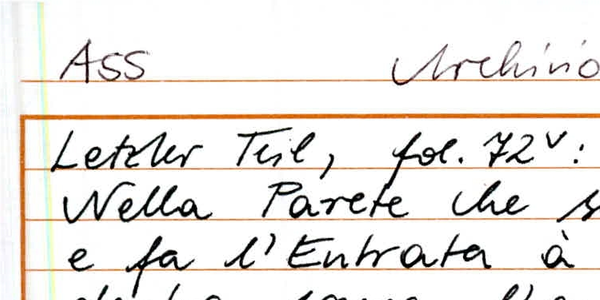 ASS Archivio
Letzter Teil, fol. 72v:
Nella Parete che s
e fa l'Entrata à